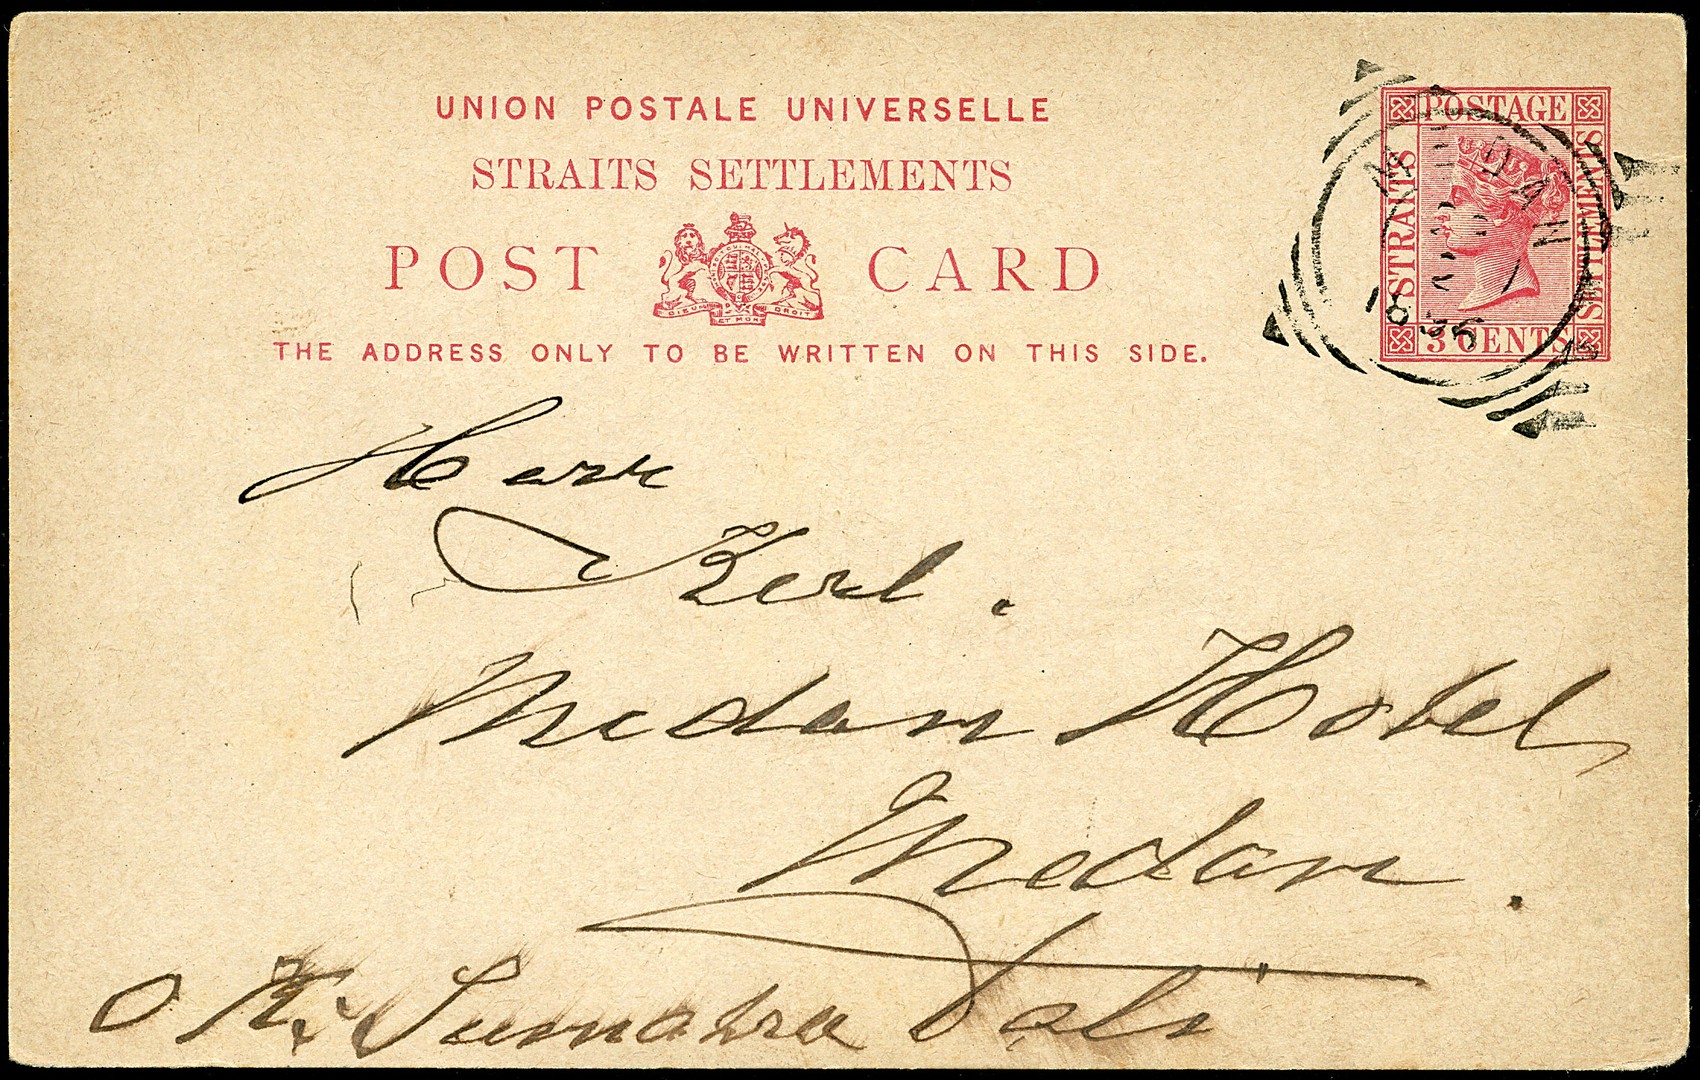 UNION POSTALE UNIVERSELLE
STRAITS SETTLEMENTS
POST CARD
DIEU ET MON DROIT
THE ADDRESS ONLY TO BE WRITTEN ON THIS SIDE.
POSTAGE
STRAITS
SETTLEMENTS
3 CENTS
MEDAN
Herrn
Kerl.
Medan Hotel
Medan.
Deli
O K. Sumatra